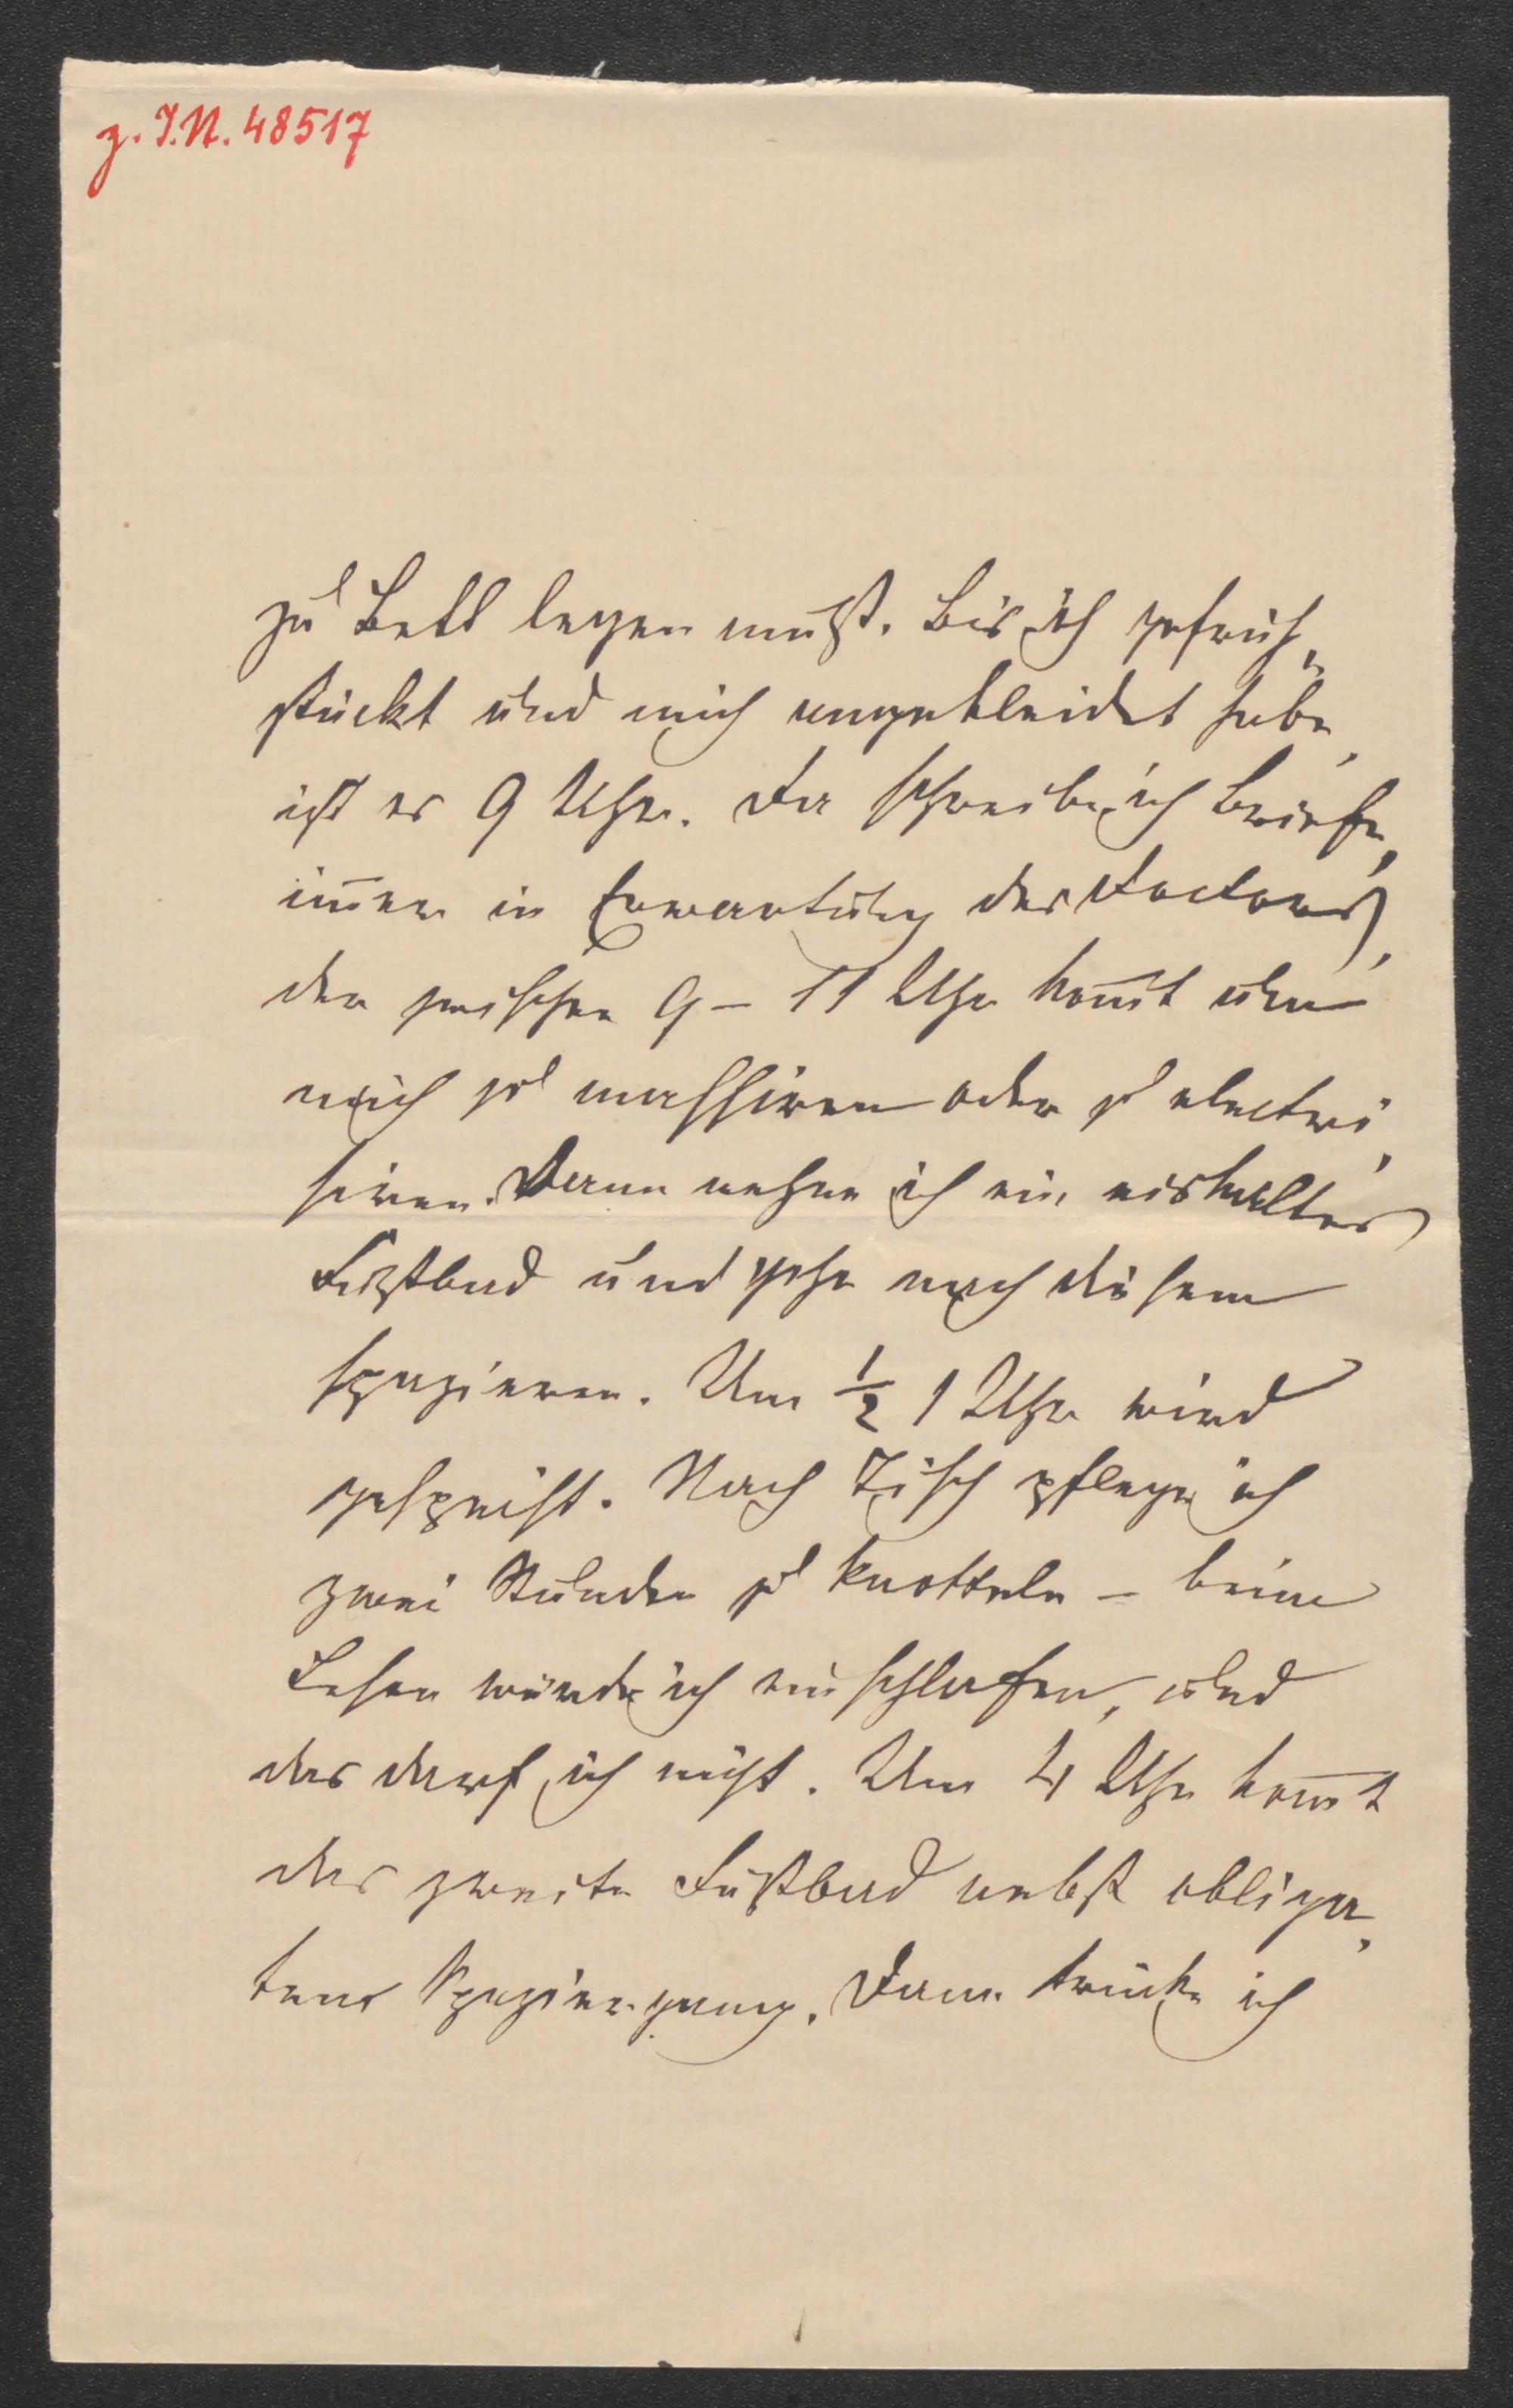 z. I.N. 48517
zu Bett legen muß. Bis ich gefrüh-
stückt und mich angekleidet habe,
ist es 9 Uhr. Da schreibe ich Briefe,
im̅er in Erwartung des Doctors,
der zwischen 9 – 11 Uhr kom̅t um
mich zu massiren oder zu electri-
siren. Dann nehme ich ein eiskaltes
Fußbad und gehe nach diesem
spazieren. Um ½ 1 Uhr wird
gespeist. Nach Tisch pflege ich
zwei Stunden zu knotteln – beim
Lesen würde ich einschlafen, und
das darf ich nicht. Um 4 Uhr kom̅t
das zweite Fußbad nebst obliga-
tem Spaziergang. Dann trinke ich